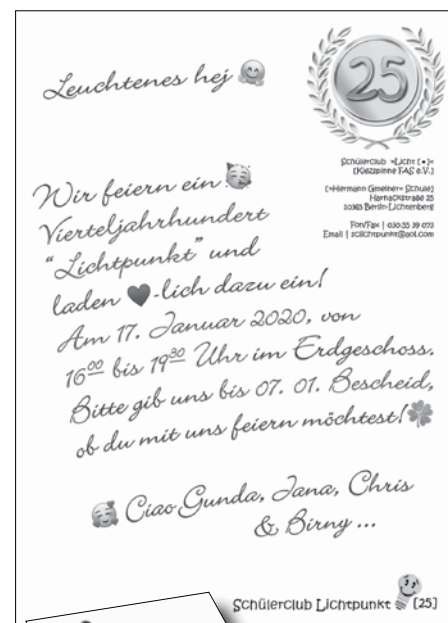 Leuchtenes hej
25
Schülerclub »Licht [•]«
[Kidzspinne FAS e.V.]
[»Hermann Gmeiner« Schule]
Harnackstraße 25
10365 Berlin-Lichtenberg
Fon/Fax | 030.55 39 073
Email | sclichtpunkt@aol.com
Wir feiern ein
Vierteljahrhundert
“Lichtpunkt” und
laden ♥-lich dazu ein!
Am 17. Januar 2020, von
16⁰⁰ bis 19³⁰ Uhr im Erdgeschoss.
Bitte gib uns bis 07. 01. Bescheid,
ob du mit uns feiern möchtest!
Ciao Gunda, Jana, Chris
& Birny ...
Schülerclub Lichtpunkt [25]